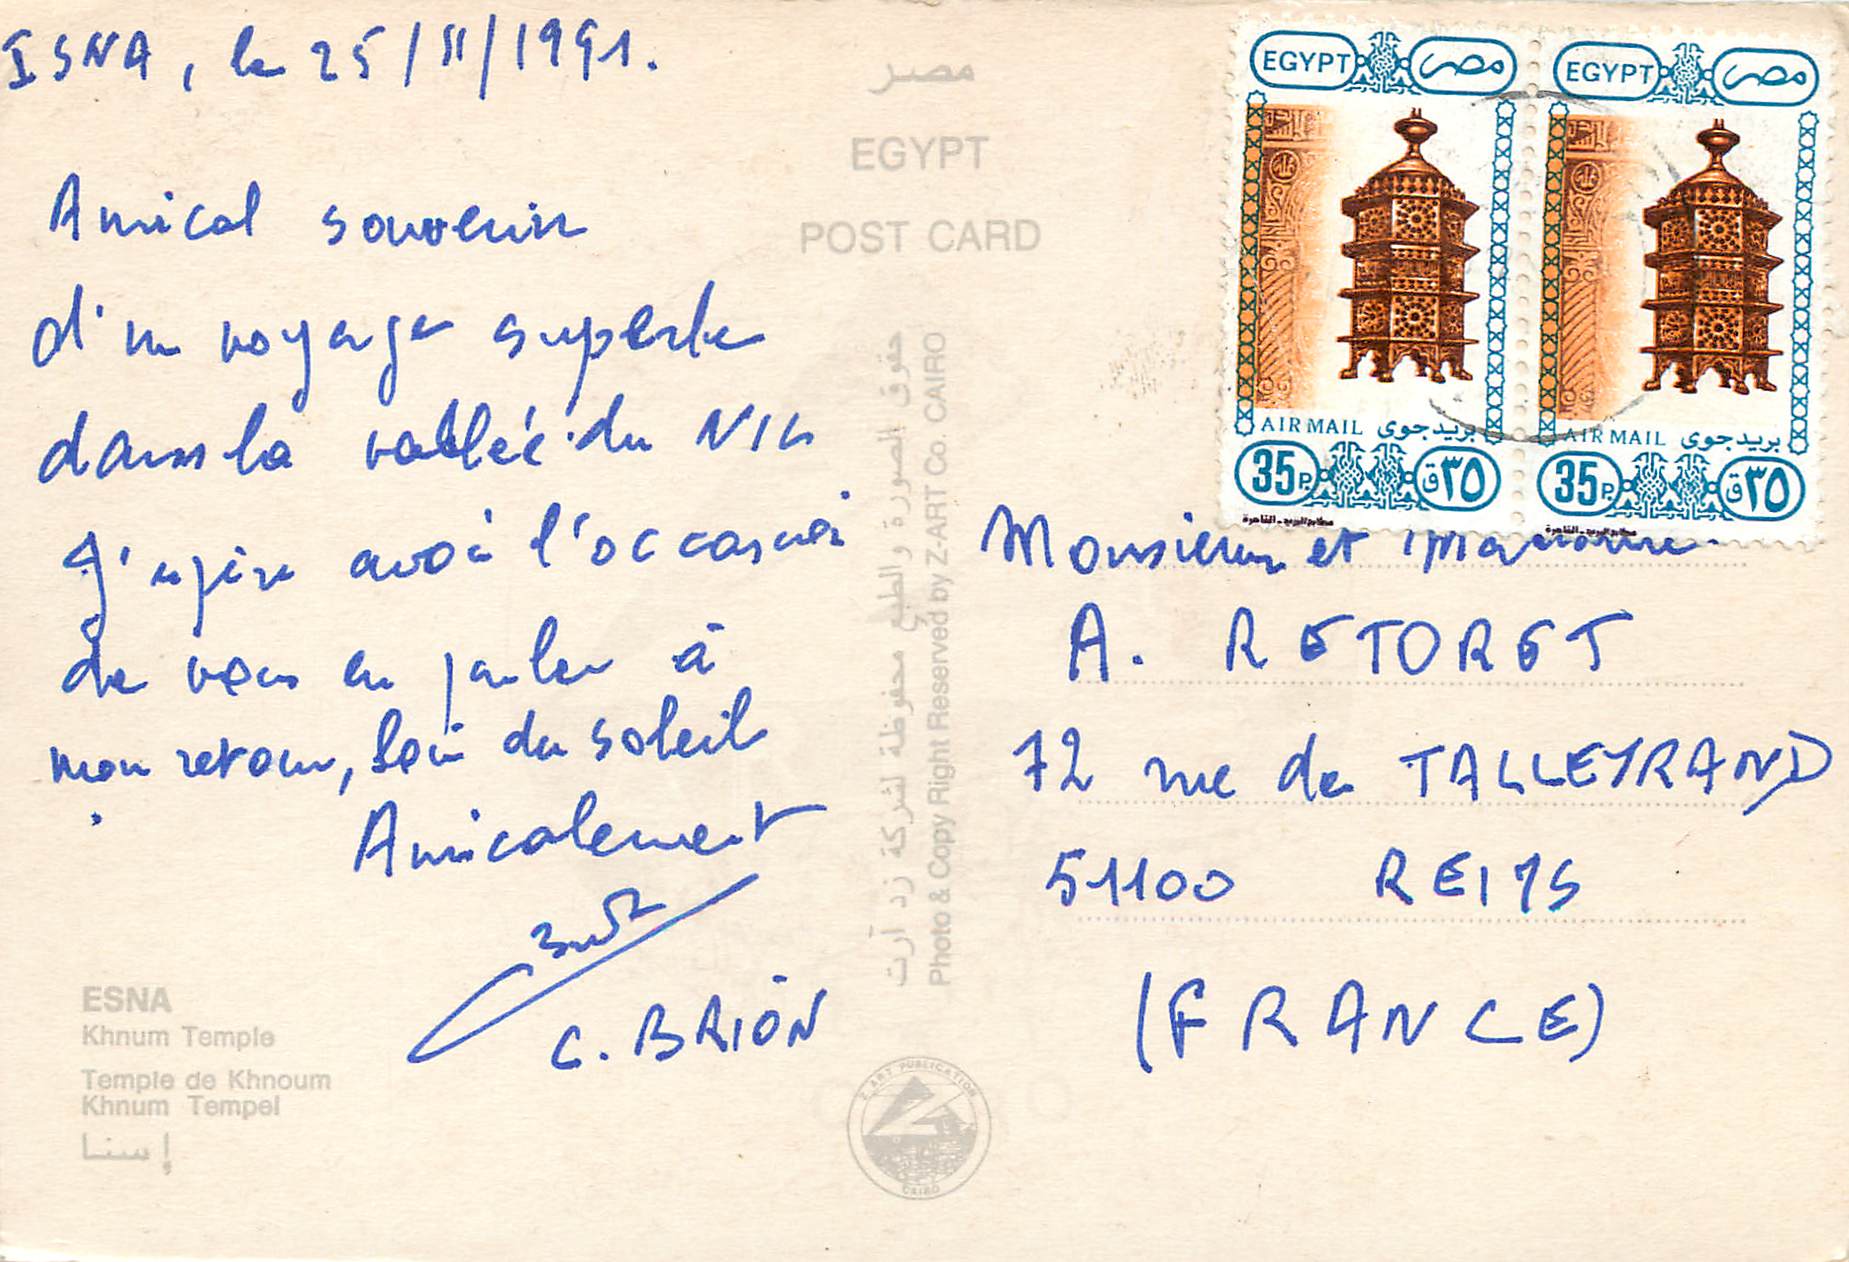 ISNA, le 25/II/1991.
Amical souvenir
d'un voyage superbe
dans la vallée du NIL
J'espère avoir l'occasion
de vous en parler à
mon retour, loin du soleil
.
Amicalement
C. BRION
ESNA
Khnum Temple
Temple de Khnoum
Khnum Tempel
إسنا
مصر
EGYPT
POST CARD
حقوق الصورة والطبع محفوظة لشركة زد آرت
Photo & Copy Right Reserved by Z-ART Co. CAIRO
Z ART PUBLICATION
CAIRO
EGYPT مصر
AIR MAIL بريد جوى
35P. ٣٥ق
مطابع البريد - القاهرة
EGYPT مصر
AIR MAIL بريد جوى
35P. ٣٥ق
مطابع البريد - القاهرة
Monsieur et Madame
A. RETORET
72 rue de TALLEYRAND
51100 REIMS
(FRANCE)